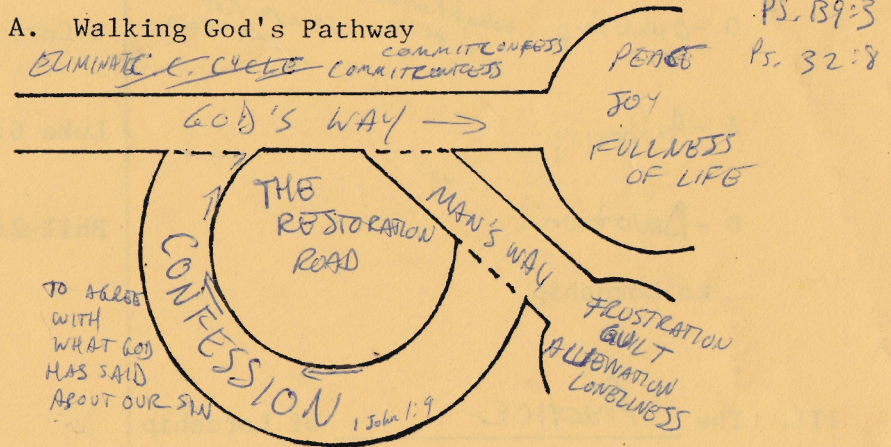 A. Walking God's Pathway
PS. 139:3
PS. 32:8
ELIMINATE C. C. CYCLE
COMMITCONFESS
COMMITCONFESS
GOD'S WAY →
PEACE
JOY
FULLNESS
OF LIFE
THE
RESTORATION
ROAD
MAN'S WAY
CONFESSION
1 John 1:9
TO AGREE
WITH
WHAT GOD
HAS SAID
ABOUT OUR SIN
FRUSTRATION
GUILT
ALIENATION
LONELINESS